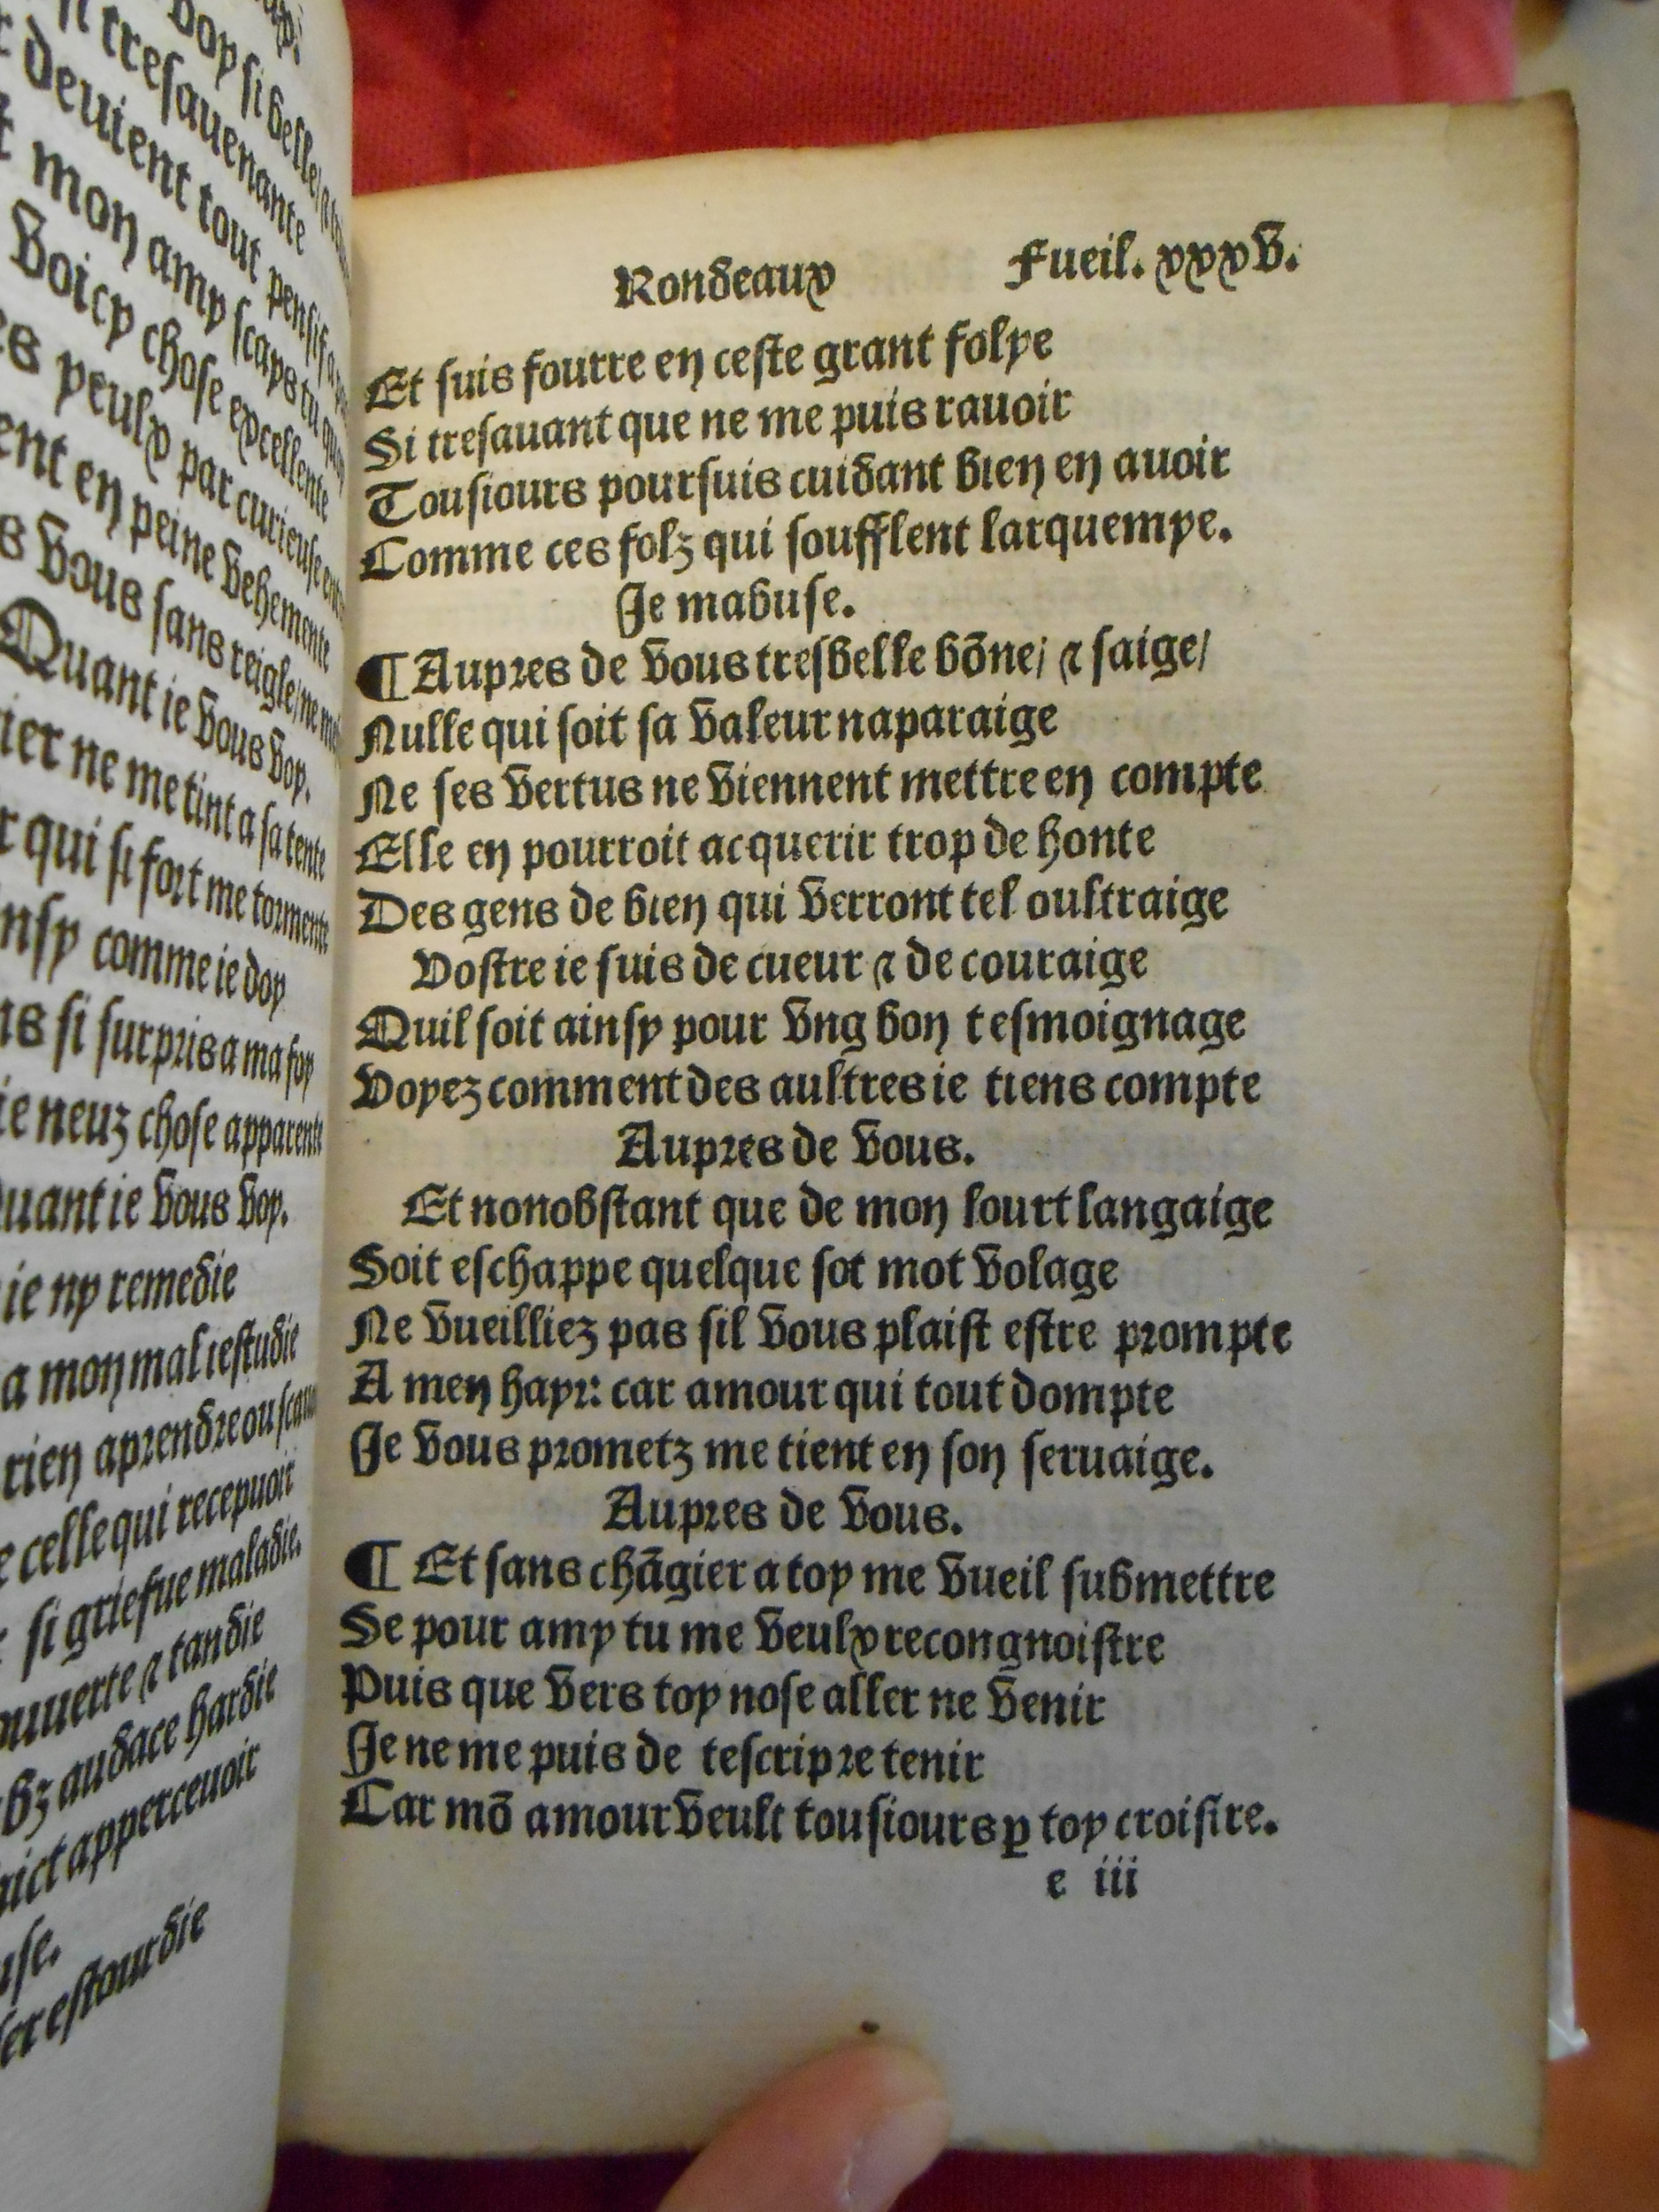 voy si belle
tresauenante
deuient tout pensif
mon amy scays tu
Voicy chose excellente
peulx par curieuse
ent en peine vehemente
s vous sans reigle/ne
Quant ie vous voy.
ier ne me tint a sa tente
r qui si fort me tormente
nsy comme ie doy
ns si surpris a ma foy
ie neuz chose apparente
uant ie vous voy.
ie ny remedie
a mon mal iestudie
rien aprendre ou
e celle qui recepuoir
si griefue maladie.
ouuerte ⁊ tandie
bz audace hardie
aict apperceuoir
use.
ser estourdie
Rondeaux Fueil. xxxV.
Et suis fourre en ceste grant folye
Si tresauant que ne me puis rauoir
Tousiours poursuis cuidant bien en auoir
Comme ces folz qui soufflent larquemye.
Je mabuse.
¶ Aupres de vous tresbelle bōne/ ⁊ saige/
Nulle qui soit sa valeur naparaige
Ne ses vertus ne viennent mettre en compte
Elle en pourroit acquerir trop de honte
Des gens de bien qui verront tel oultraige
Vostre ie suis de cueur ⁊ de couraige
Quil soit ainsy pour vng bon tesmoignage
Voyez comment des aultres ie tiens compte
Aupres de vous.
Et nonobstant que de mon lourt langaige
Soit eschappe quelque sot mot volage
Ne vueilliez pas sil vous plaist estre prompte
A men hayr: car amour qui tout dompte
Je vous prometz me tient en son seruaige.
Aupres de vous.
¶ Et sans chāgier a toy me vueil submettre
Se pour amy tu me veulx recongnoistre
Puis que vers toy nose aller ne venir
Je ne me puis de tescripre tenir
Car mō amour veult tousiours ꝑ toy croistre.
e iii